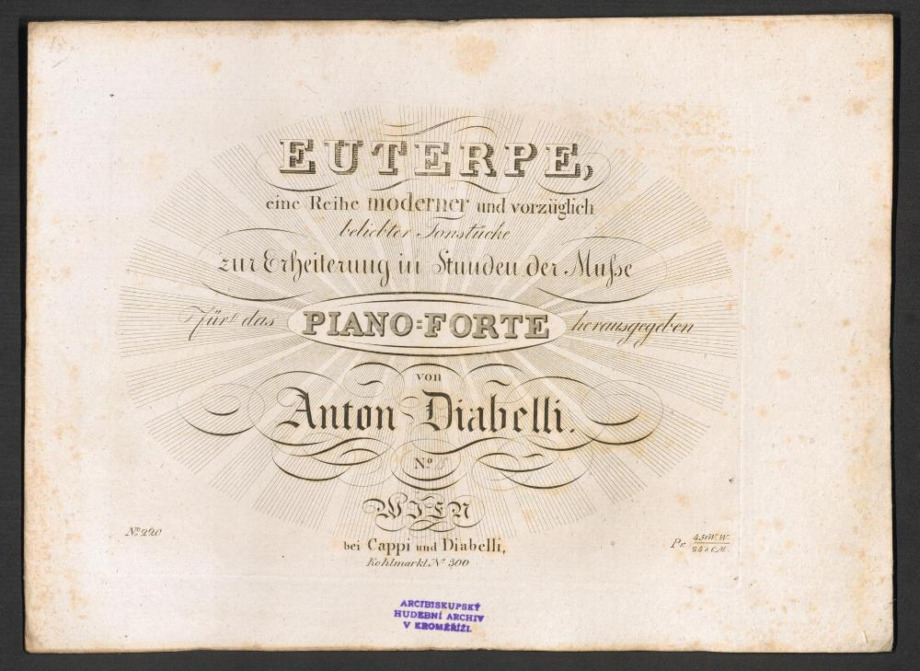 EUTERPE,
eine Reihe moderner und vorzüglich
beliebter Tonstücke
zur Erheiterung in Stunden der Muſse
Für das PIANO=FORTE herausgegeben
von
Anton Diabelli.
Nº 15
WIEN
Nº 220
bei Cappi und Diabelli,
Kohlmarkt Nº 300
Pr.
ARCIBISKUPSKÝ
HUDEBNÍ ARCHIV
V KROMĚŘÍŽI.